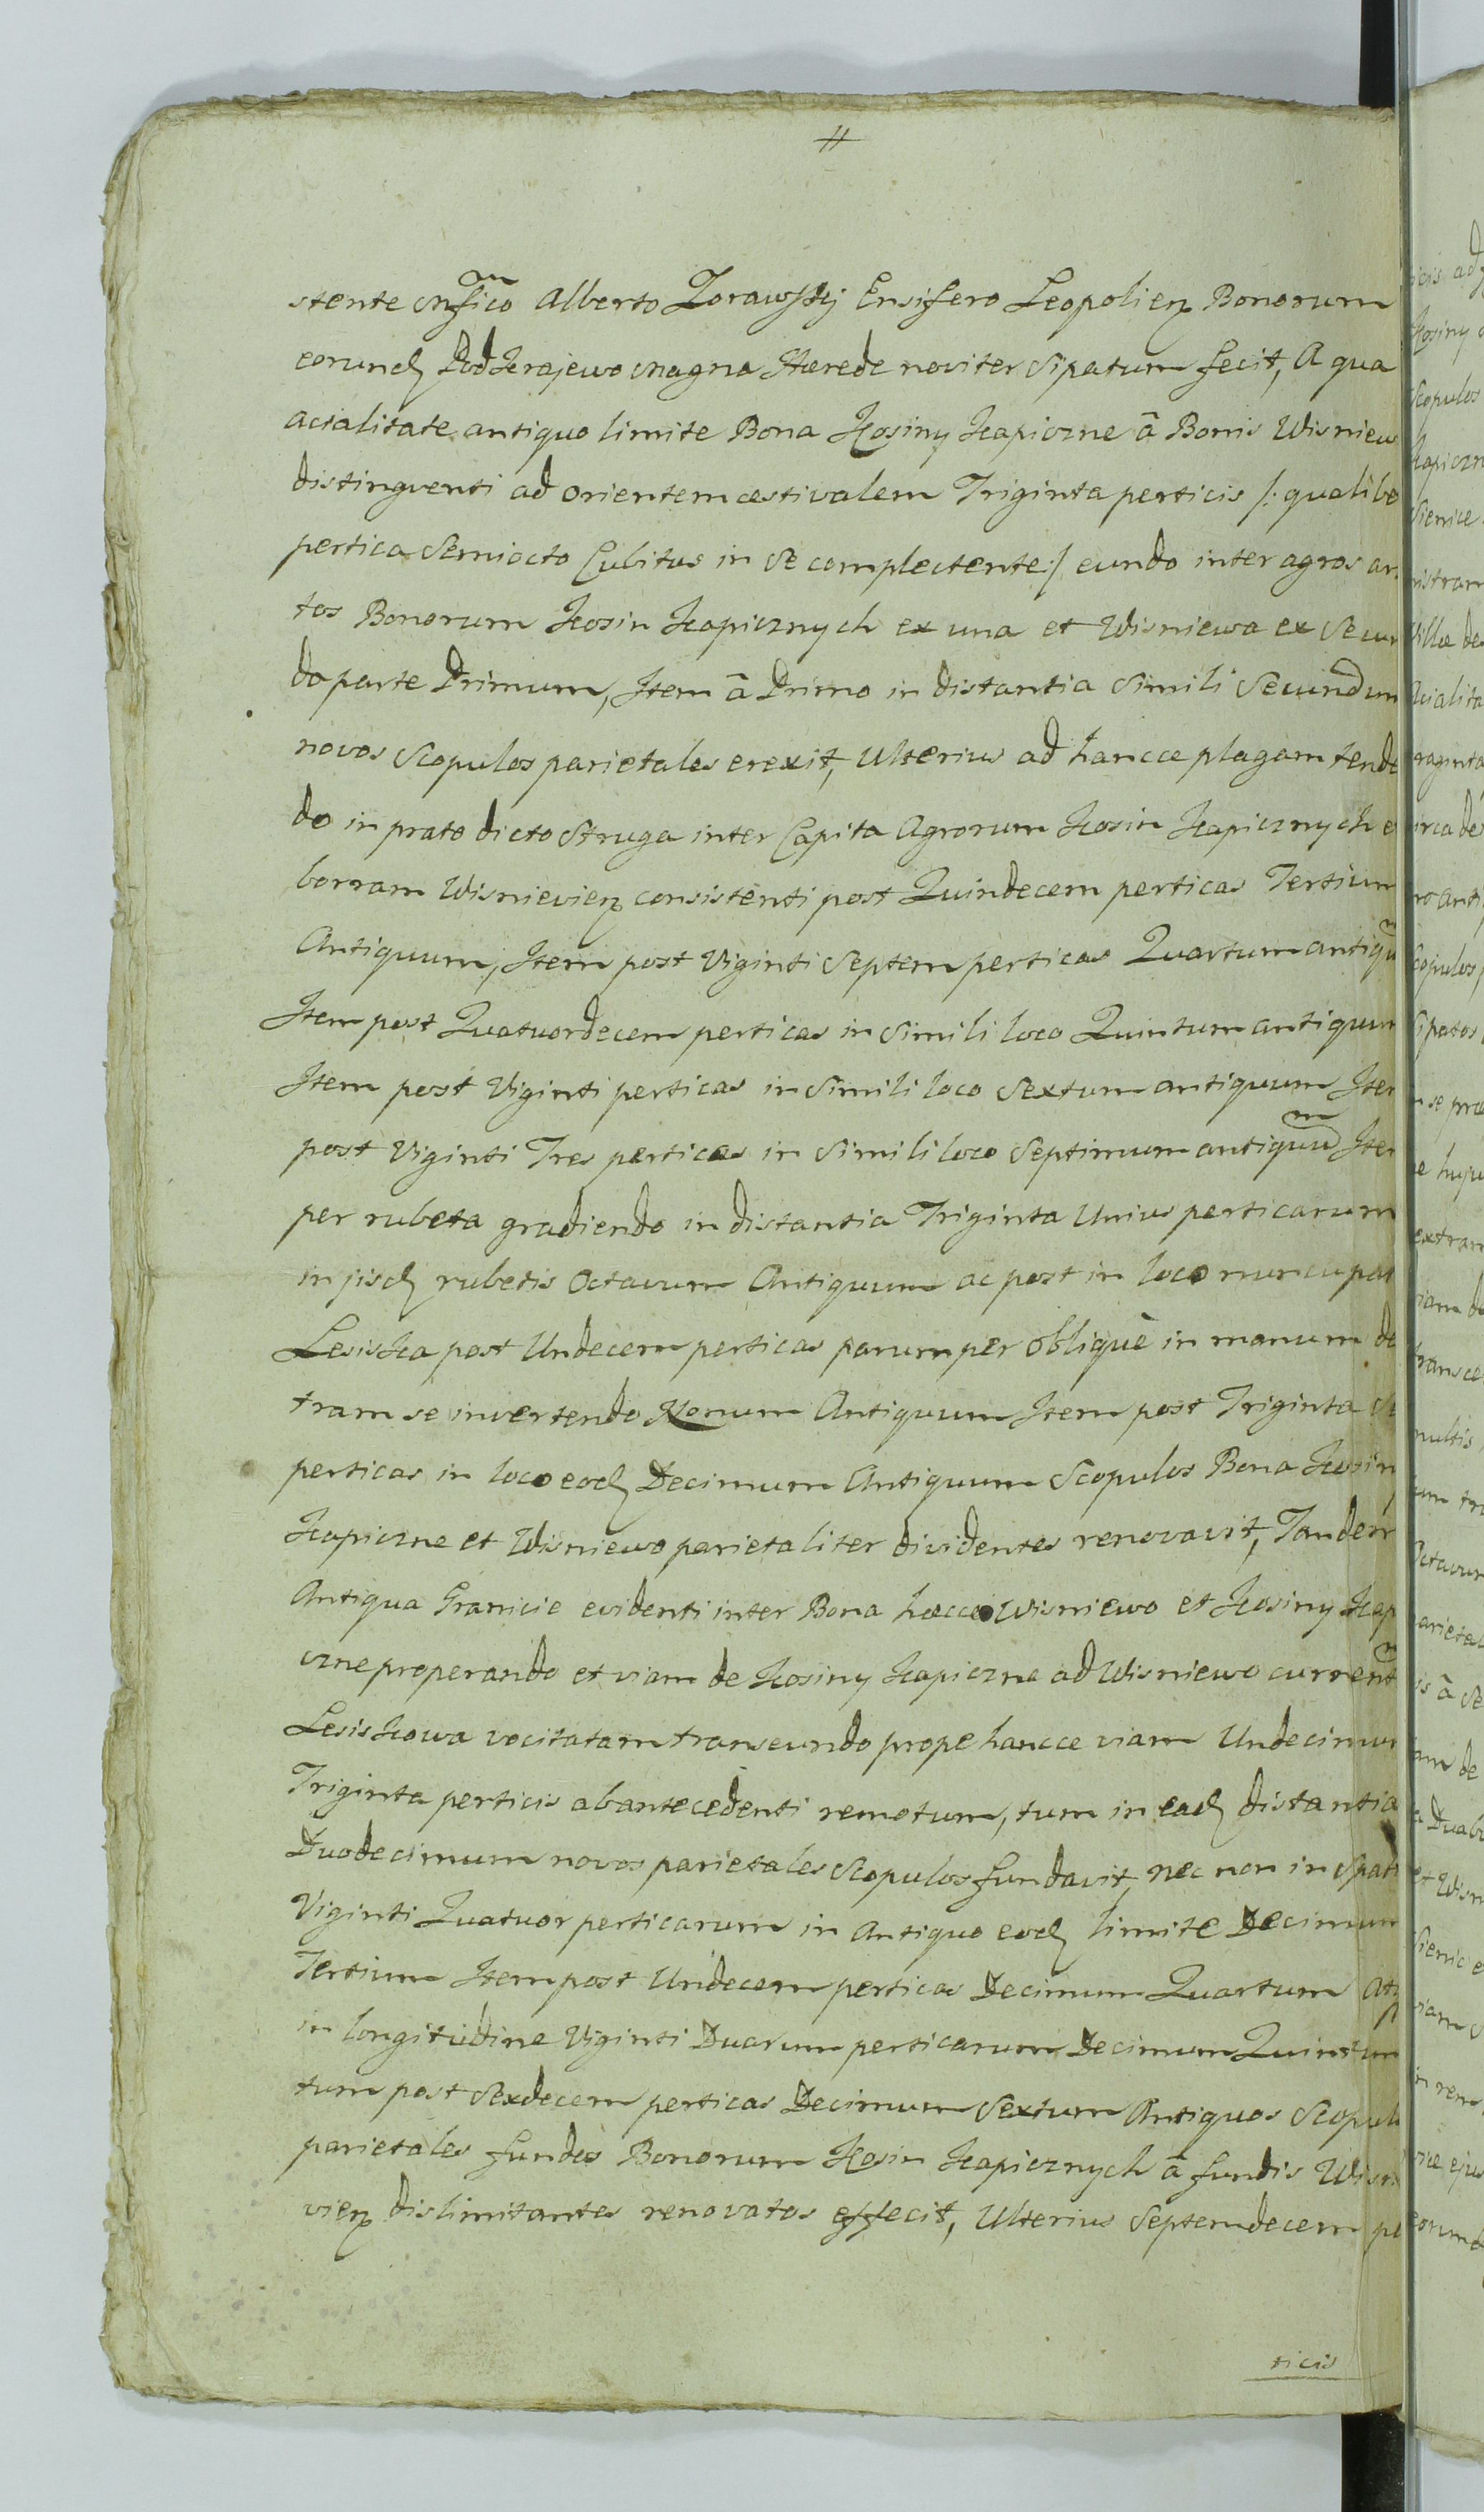 #
stente Mfico Alberto Zorawskj Ensifero Leopolien Bonorum
eorund Podkrajewo Magna Hærede noviter Sipatum fecit, A qua
acialitate antiquo limite Bona Kosiny Kapiczne â Bonis Wisniew
distingventi ad orientem æstivalem Triginta perticis /: qualibe
pertica Semiocto Cubitus in Se complectente :/ eundo inter agros ar
tos Bonorum Kosin Kapicznych ex una et Wisniewa ex Secun
da parte Primum, Item â Primo in distantia Simili Secundum
novos Scopulos parietales erexit, Ulterius ad hancce plagam tende
do in prato dicto Struga inter Capita Agrorum Kosin Kapicznych e
borram Wisnievien consistenti post Quindecem perticas Tertium
Antiquum, Item post Viginti Septem perticas Quartum antiqu
Item post Quatuordecem perticas in Simili loco Quintum antiquum
Item post Viginti perticas in Simili loco Sextum antiquum Item
post Viginti Tres perticas in Simili loco Septimum antiquum Item
per rubeta gradiendo in distantia Triginta Unius perticarum
in jisd rubetis Octavum Antiquum ac post in loco nuncupat
Lesiska post Undecem perticas parumper oblique in manum de
tram se invertendo Nonum Antiquum Item post Triginta
perticas in loco eod Decimum Antiquum Scopulos Bona Kosin
Kapiczne et Wisniewo parietaliter dividentes renovavit, Tandem
Antiqua Granicie evidenti inter Bona hæcce Wisniewo et Kosiny Kap
czne properando et viam de Kosiny Kapiczne ad Wisniewo current
Lesiskowa vocitatam transeundo prope hancce viam Undecimum
Triginta perticis ab antecedenti remotum, tum in ead distantia
Duodecimum novos parietales Scopulos fundavit, nec non in Spati
Viginti Quatuor perticarum in Antiquo eod limite Decimum
Tertium Item post Undecem perticas Decimum Quartum At
in longitudine Viginti Duarum perticarum Decimum Quintum
tum post Sexdecem perticas Decimum Sextum Antiquos Scopul
parietales fundos Bonorum Kosin Kapicznych â fundis Wisn
vien dislimitantes renovatos effecit, Ulterius Septemdecem pe
ticis